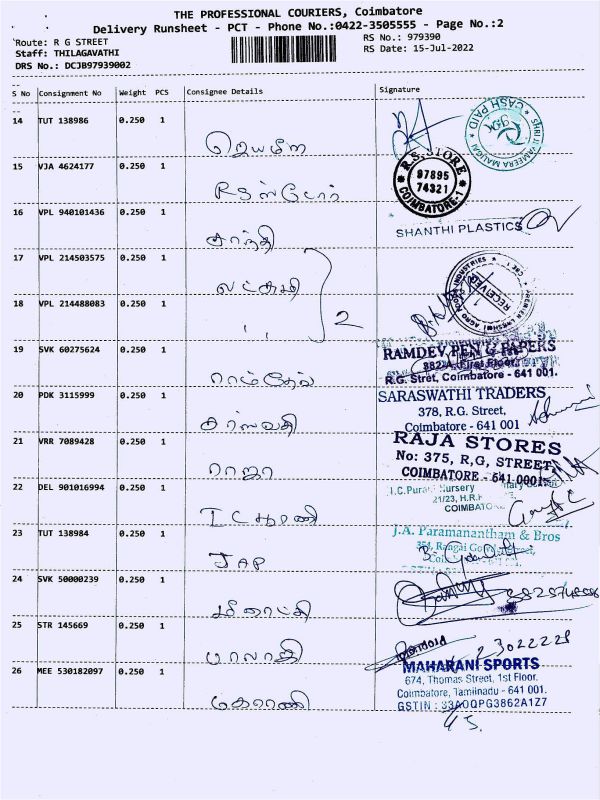 THE PROFESSIONAL COURIERS, Coimbatore
Delivery Runsheet - PCT - Phone No.:0422-3505555 - Page No.:2
Route: R G STREET
RS No.: 979390
Staff: THILAGAVATHI
RS Date: 15-Jul-2022
DRS No.: DCJB97939002
S No Consignment No Weight PCS Consignee Details Signature
14 TUT 138986 0.250 1
ஜெயமீரா
SHRI JAMEERA MALIGAI
CASH PAID
15 VJA 4624177 0.250 1
RS ஸ்டோர்
R.S. STORE
97895
74321
COIMBATORE-1
16 VPL 940101436 0.250 1
சாந்தி
SHANTHI PLASTICS
17 VPL 214503575 0.250 1
லட்சுமி
RECEIVED
18 VPL 214488083 0.250 1
,, 2
19 SVK 60275624 0.250 1
ராம்தேவ்
RAMDEV PEN & PAPERS
882A, First Floor,
R.G. Stret, Coimbatore - 641 001.
20 PDK 3115999 0.250 1
சரஸ்வதி
SARASWATHI TRADERS
378, R.G. Street,
Coimbatore - 641 001
21 VRR 7089428 0.250 1
ராஜா
RAJA STORES
No: 375, R,G, STREET,
COIMBATORE - 641 0001.
22 DEL 901016994 0.250 1
I.C.
21/23, H.R.
COIMBATO
23 TUT 138984 0.250 1
JAP
J.A. Paramanantham & Bros
24 SVK 50000239 0.250 1
மீனாட்சி
25 STR 145669 0.250 1
பாலாஜி
26 MEE 530182097 0.250 1
மகாராணி
MAHARANI SPORTS
674, Thomas Street, 1st Floor.
Coimbatore, Tamilnadu - 641 001.
GSTIN : 33AOQPG3862A1Z7